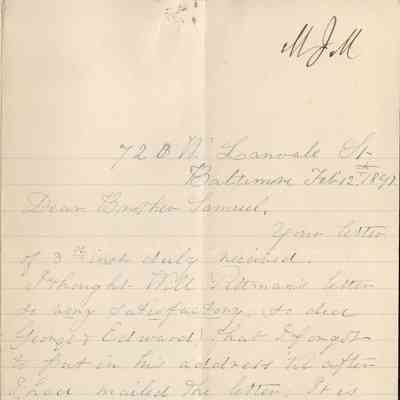 MJM
720 W Lanvale St
Baltimore Feb 12th 189
Dear Brother Samuel,
Your letter
of 3rd inst duly received.
I thought Will Pittman's letter
so very satisfactory, so did
George & Edward that I forgot
to put in his address 'til after
I had mailed the letter. It is